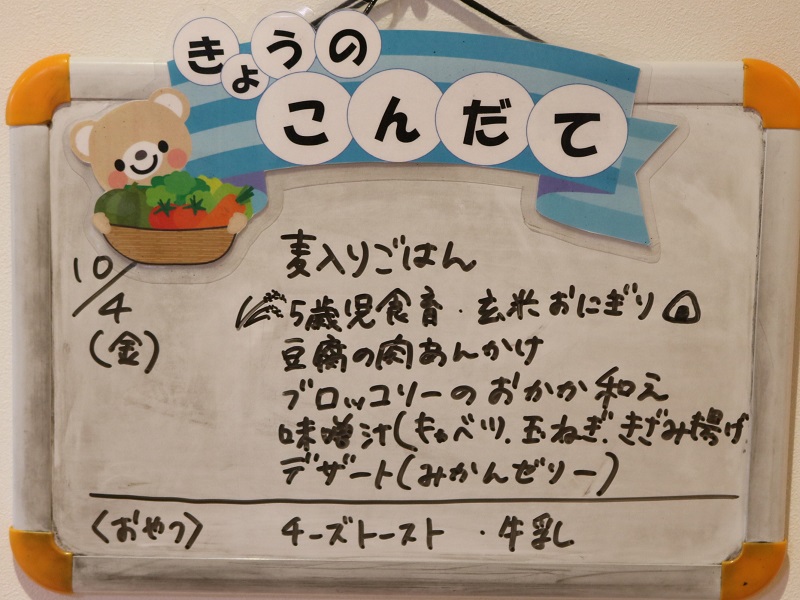 きょうの
こんだて
10/4
(金)
麦入りごはん
5歳児食育・玄米おにぎり
豆腐の肉あんかけ
ブロッコリーのおかか和え
味噌汁(キャベツ.玉ねぎ.きざみ揚げ
デザート(みかんゼリー)
〈おやつ〉 チーズトースト ・牛乳